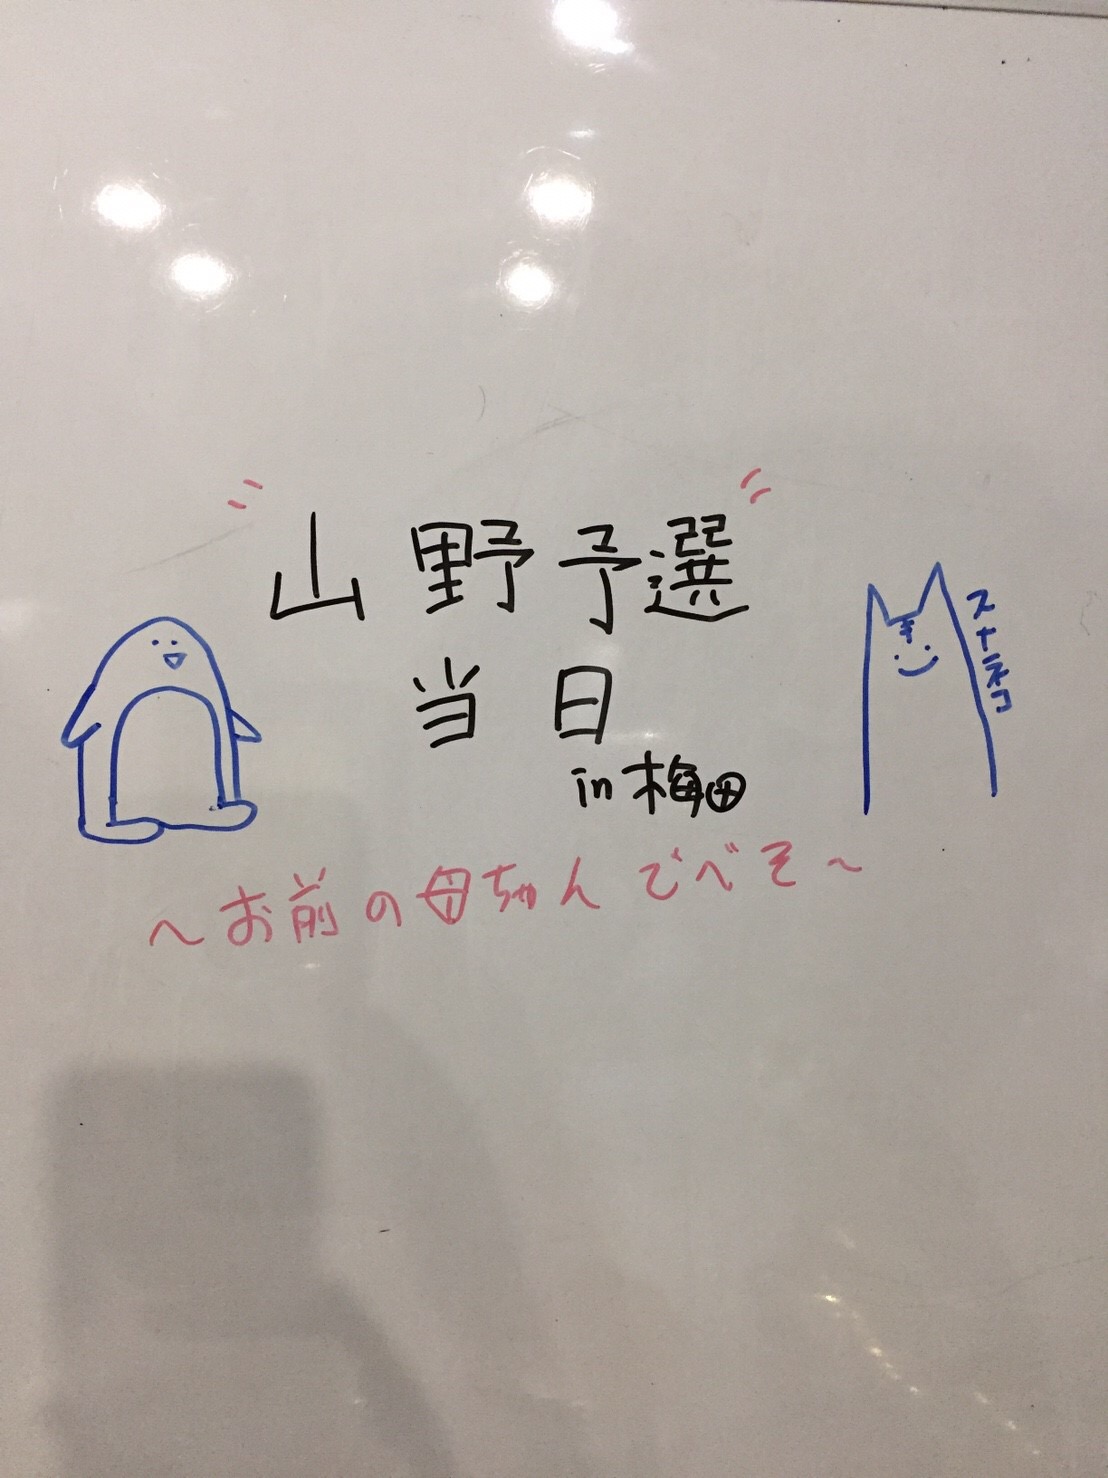 山野予選
当日
in 梅田
〜お前の母ちゃんでべそ〜